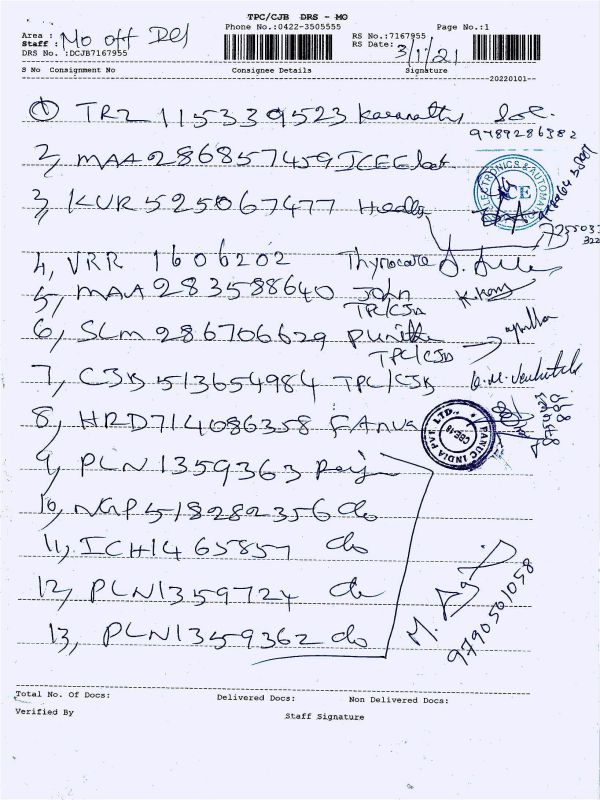 TPC/CJB DRS - MO
Phone No.:0422-3505555 Page No.:1
Area : Mo off Del RS No.:7167955
Staff : RS Date: 3/1/21
DRS No. :DCJB7167955
S No Consignment No Consignee Details Signature
--20220101--
1 TRZ 115339523
9789286382
2, MAA 286857459 ICE
ELECTRONICS & AUTOMAT
ICE
3, KUR 525067477
4, VRR 1606202 Thyrocare
5, MAA 283588640 John
TPC/CJB
6, SLM 286706629
TPC/CJB
7, CJB 513654984 TPC/CJB
8, HRD714086358 FANUC
FANUC INDIA PVT. LTD.,
CBE-18
9, PLN 1359363
10, NGP 518282356 do
11, ICH1465857 do
12, PLN1359724 do
13, PLN1359362 do
M.
9790501058
Total No. Of Docs: Delivered Docs: Non Delivered Docs:
Verified By Staff Signature